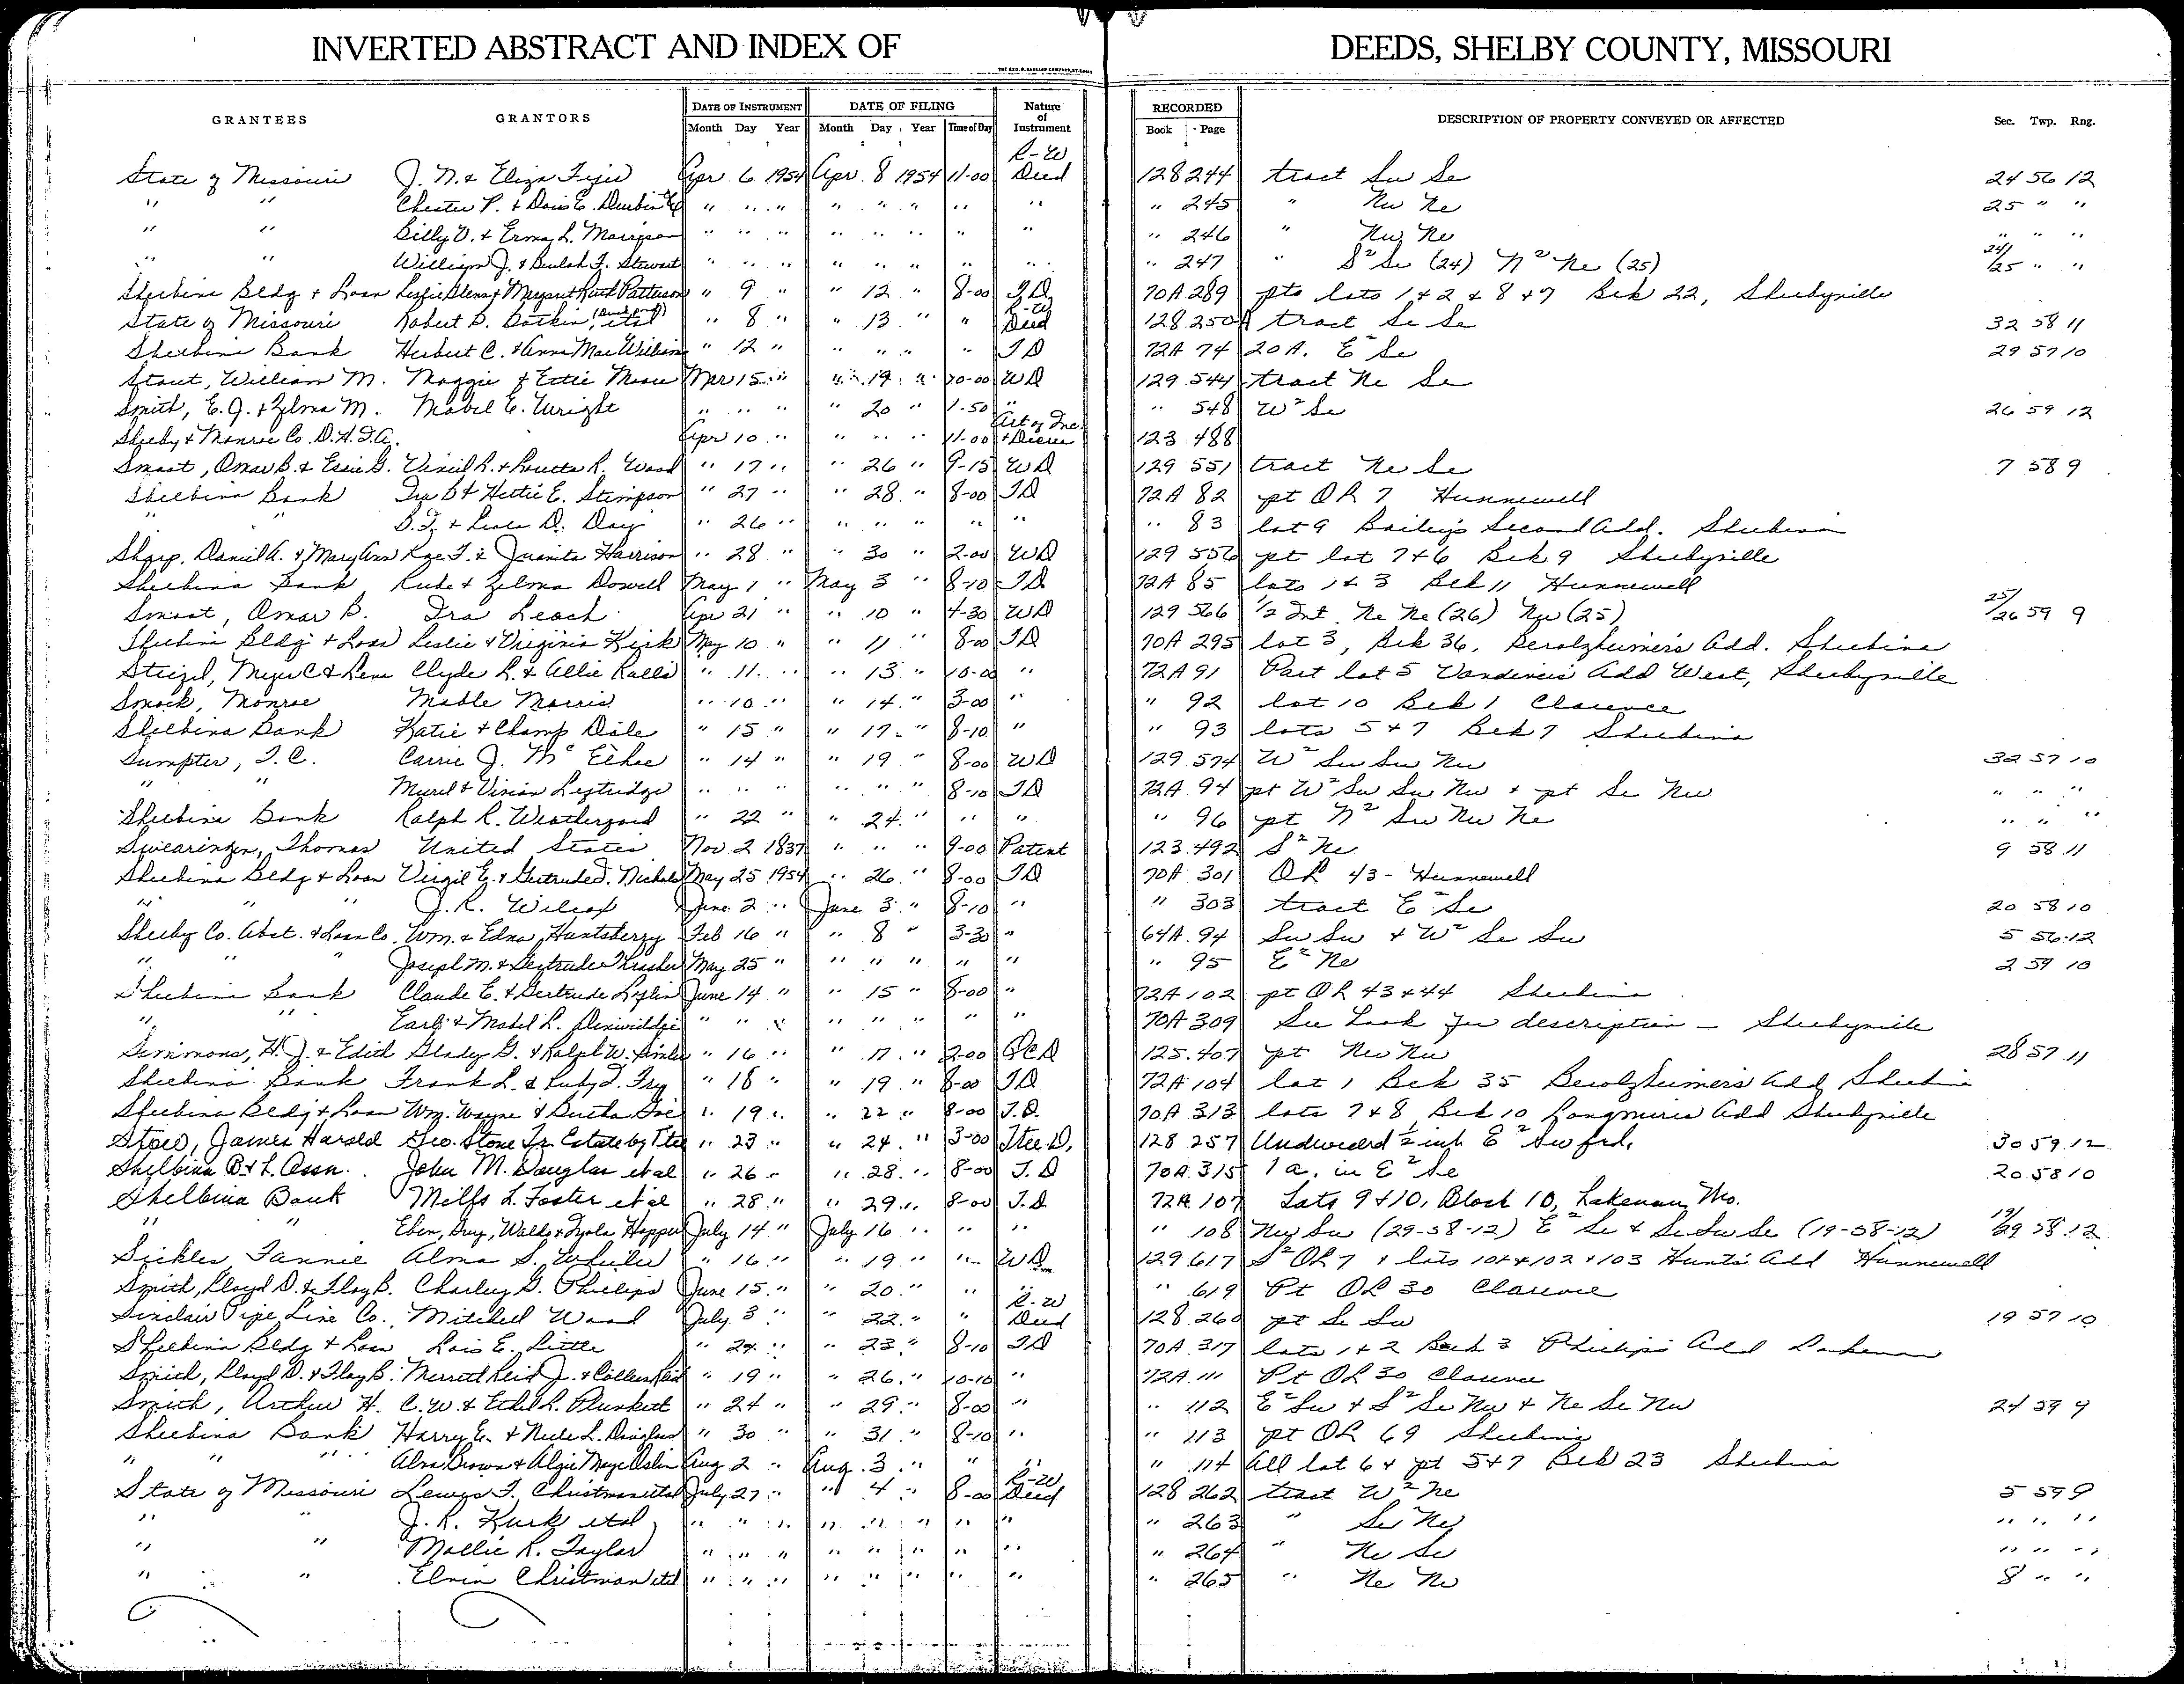 INVERTED ABSTRACT AND INDEX OF DEEDS, SHELBY COUNTY, MISSOURI
GRANTEES GRANTORS DATE OF INSTRUMENT Month Day Year DATE OF FILING Month Day Year Time of Day Nature of Instrument RECORDED Book Page DESCRIPTION OF PROPERTY CONVEYED OR AFFECTED Sec. Twp. Rng.
State of Missouri J. N. & Eliza Apr. 6 1954 Apr. 8 1954 11-00 R-W Deed 128 244 tract Sw Se 24 56 12
" " Chester P. & Dois E. Durbin " " " " " " " " " 245 " Nw Ne 25 " "
" " Billy D. & Erma L. " " " " " " " " " 246 " Nw Ne " " "
" " William J. & Beulah F. Stewart " " " " " " " " " 247 " S² Se (24) N² Ne (25) 24/25 " "
Shelbina Bldg & Loan Leslie Glenn & Margaret Ruth Patterson " 9 " " 12 " 8-00 T.D. 70A 289 pts lots 1 & 2 & 8 & 7 Blk 22, Shelbyville
State of Missouri Robert D. Botkin, etal " 8 " " 13 " " R-W Deed 128 250A tract Se Se 32 58 11
Shelbina Bank Herbert C. & Anna Mae Williams " 12 " " " " " T D 72A 74 20 A. E² Se 29 57 10
Stout, William M. Maggie & Ettie Moore Mar 15 " " 19 " 10-00 WD 129 544 tract Ne Se
Smith, E. J. & Zelma M. Mabel E. Wright " " " " 20 " 1-50 " " 548 W² Se 26 59 12
Shelby & Monroe Co. D.H.I.A. Apr 10 " " " " 11-00 Art of Inc. 123 488
Smoot, Omar B. & Essie G. Virail L. & Louetta R. Wood " 17 " " 26 " 9-15 WD 129 551 tract Ne Se 7 58 9
Shelbina Bank Ira B & Hettie E. Stimpson " 27 " " 28 " 8-00 TD 72A 82 pt OL 7 Hunnewell
" " S. T. & Leola D. Day " 26 " " " " " " " 83 lot 9 Bailey's Second Add. Shelbina
Sharp, Daniel A. & Mary Ann Roe T. & Juanita Harrison " 28 " " 30 " 2-00 WD 129 556 pt lot 7 & 6 Blk 9 Shelbyville
Shelbina Bank Rude & Zelma Dowell May 1 " May 3 " 8-10 TD 72A 85 lots 1 & 3 Blk 11 Hunnewell
Smoot, Omar B. Ira Leach Apr 21 " " 10 " 4-30 WD 129 566 ½ Int. Ne Ne (26) Nw (25) 25/26 59 9
Shelbina Bldg & Loan Leslie & Virginia Kirk May 10 " " 11 " 8-00 TD 70A 295 lot 3, Blk 36, Berolzheimer's Add. Shelbina
Stiegel, Meyer C & Lena Clyde L. & Allie Ralls " 11 " " 13 " 10-00 " 72A 91 Part lot 5 Vandiver's Add West, Shelbyville
Smock, Monroe Mable Morris " 10 " " 14 " 3-00 " " 92 lot 10 Blk 1 Clarence
Shelbina Bank Katie & Champ Dale " 15 " " 17 " 8-10 " " 93 lots 5 & 7 Blk 7 Shelbina
Sumpter, T. C. Carrie J. " 14 " " 19 " 8-00 WD 129 574 W² Sw Sw Nw 32 57 10
" " Murel & Vivian Lightridge " " " " " " 8-10 TD 72A 94 pt W² Sw Sw Nw & pt Se Nw " " "
Shelbina Bank Ralph R. Weatherford " 22 " " 24 " " " " 96 pt N² Sw Nw Ne " " "
Swearingen, Thomas United States Nov. 2 1837 " " " 9-00 Patent 123 492 S² Ne 9 58 11
Shelbina Bldg & Loan Virgil E. & Gertrude D. Nichols May 25 1954 " 26 " 8-00 TD 70A 301 OL 43 - Hunnewell
" " " J. R. Wilcox June 2 " June 3 " 8-10 " " 303 tract E² Se 20 58 10
Shelby Co. Abst. & Loan Co. Wm. & Edna Huntsberry Feb 16 " " 8 " 3-30 " 64A 94 Sw Sw & W² Se Sw 5 56 12
" " " Joseph M. & Gertrude Thrasher May 25 " " " " " " " 95 E² Ne 2 59 10
Shelbina Bank Claude E. & Gertrude June 14 " " 15 " 8-00 " 72A 102 pt OL 43 & 44 Shelbina
" " Earl & Mabel L. Dinwiddie " " " " " " " " 70A 309 See book for description - Shelbyville
Simmons, H. J. & Edith Glady G. & Ralph W. " 16 " " 17 " 2-00 QCD 125 407 pt Nw Nw 28 57 11
Shelbina Bank Frank L. & Ruby I. Fry " 18 " " 19 " 8-00 TD 72A 104 lot 1 Blk 35 Berolzheimer's Add Shelbina
Shelbina Bldg & Loan Wm. Wayne & " 19 " " 22 " 8-00 T.D. 70A 313 lots 7 & 8 Blk 10 Longmires Add Shelbyville
Stoee, James Harold Geo. Stone Jr. Estate by Ttee " 23 " " 24 " 3-00 Ttee D. 128 257 Undivided ½ int E² Sw frl. 30 59 12
Shelbina B. & L. Assn. John M. Douglas et al " 26 " " 28 " 8-00 T. D 70A 315 1 a. in E² Se 20 58 10
Shelbina Bank Milfs L. Foster et al " 28 " " 29 " 8-00 T. D 72A 107 Lots 9 & 10, Block 10, Lakenan, Mo.
" " Eben, Guy, Waldo & Nola Hopper July 14 " July 16 " " " " 108 Nw Sw (29-58-12) E² Se & Se Sw Se (19-58-12) 19/29 58 12
Sickles, Fannie Alma S. Wheeler " 16 " " 19 " " WD 129 617 S² OL 7 & lots 101 & 102 & 103 Hunts Add Hunnewell
Smith, Lloyd D. & Floy B. Charley G. Phillips June 15 " " 20 " " " " 619 Pt OL 30 Clarence
Sinclair Pipe Line Co. Mitchell Wood July 3 " " 22 " " R-W Deed 128 260 pt Se Sw 19 57 10
Shelbina Bldg & Loan Lois E. Little " 24 " " 23 " 8-10 TD 70A 317 lots 1 & 2 Blk 3 Phillips Add Lakenan
Smith, Lloyd D. & Floy B. Merrett Reid Jr. & Colleen Reid " 19 " " 26 " 10-10 " 72A 111 Pt OL 30 Clarence
Smith, Arthur H. C. W. & Ethel L. Plunkett " 24 " " 29 " 8-00 " " 112 E² Sw & S² Se Nw & Ne Se Nw 24 59 9
Shelbina Bank Harry E. & Neele L. Douglas " 30 " " 31 " 8-10 " " 113 pt OL 69 Shelbina
" " Alva Brown & Algie Maye Aug 2 " Aug. 3 " " " " 114 All lot 6 & pt 5 & 7 Blk 23 Shelbina
State of Missouri Lewis F. Christman etal July 27 " " 4 " 8-00 R-W Deed 128 262 tract W² Ne 5 59 9
" " J. R. Kirk etal " " " " " " " " " 263 " Se Ne " " "
" " Mollie R. Taylor " " " " " " " " " 264 " Ne Se " " "
" " Elvin Christman etal " " " " " " " " " 265 " Ne Ne 8 " "